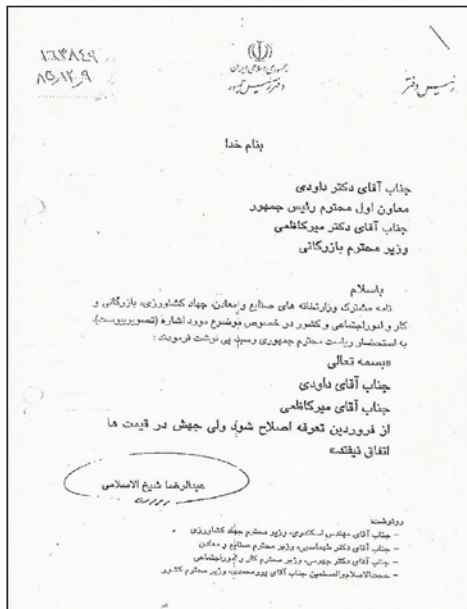 ۱۶۳۸۴۶
۸۵/۱۲/۰۹
جمهوری اسلامی ایران
دفتر رئیس جمهور
رئیس دفتر
بنام خدا
جناب آقای دکتر داودی
معاون اول محترم رئیس جمهور
جناب آقای دکتر میرکاظمی
وزیر محترم بازرگانی
باسلام
نامه مشترک وزارتخانه های صنایع و معادن، جهاد کشاورزی، بازرگانی و
کار و اموراجتماعی و کشور در خصوص موضوع مورد اشاره (تصویرپیوست)،
به استحضار ریاست محترم جمهوری رسید، پی نوشت فرمودند :
«بسمه تعالی
جناب آقای داودی
جناب آقای میرکاظمی
از فروردین تعرفه اصلاح شود ولی جهش در قیمت ها
اتفاق نیفتد.»
عبدالرضا شیخ الاسلامی
رونوشت:
- جناب آقای مهندس اسکندری، وزیر محترم جهاد کشاورزی
- جناب آقای دکتر طهماسبی، وزیر محترم صنایع و معادن
- جناب آقای دکتر جهرمی، وزیر محترم کار و اموراجتماعی
- حجت‌الاسلام‌والمسلمین جناب آقای پورمحمدی، وزیر محترم کشور